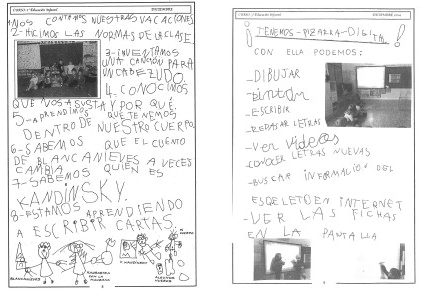 CURSO 3º Educación Infantil
1-NOS CONTAMOS NUESTRAS VACACIONES
2-HICIMOS LAS NORMAS DE LA CLASE
3-INVENTAMOS
UNA CANCIÓN PARA
UN CABEZUDO.
4-CONOCIMOS
QUE NOS ASUSTA Y POR QUÉ.
5-APRENDIMOS QUE TENEMOS
DENTRO DE NUESTRO CUERPO.
6-SABEMOS QUE EL CUENTO
DE BLANCANIEVES A VECES
CAMBIA
7-SABEMOS QUIEN ES
KANDINSKY.
8-ESTAMOS APRENDIENDO
A ESCRIBIR CARTAS.
BLANCANIEVES
KANDINSKY
CURSO 3º Educación Infantil
DICIEMBRE
¡TENEMOS-PIZARRA-DIGITAL!
CON ELLA PODEMOS:
-DIBUJAR
-PINTAR
-ESCRIBIR
-REPASAR LETRAS
-VER VIDEOS
-CONOCER LETRAS NUEVAS
-BUSCAR INFORMACION DEL
ESQUELETO EN INTERNET
-VER LAS FICHAS
EN LA PANTALLA